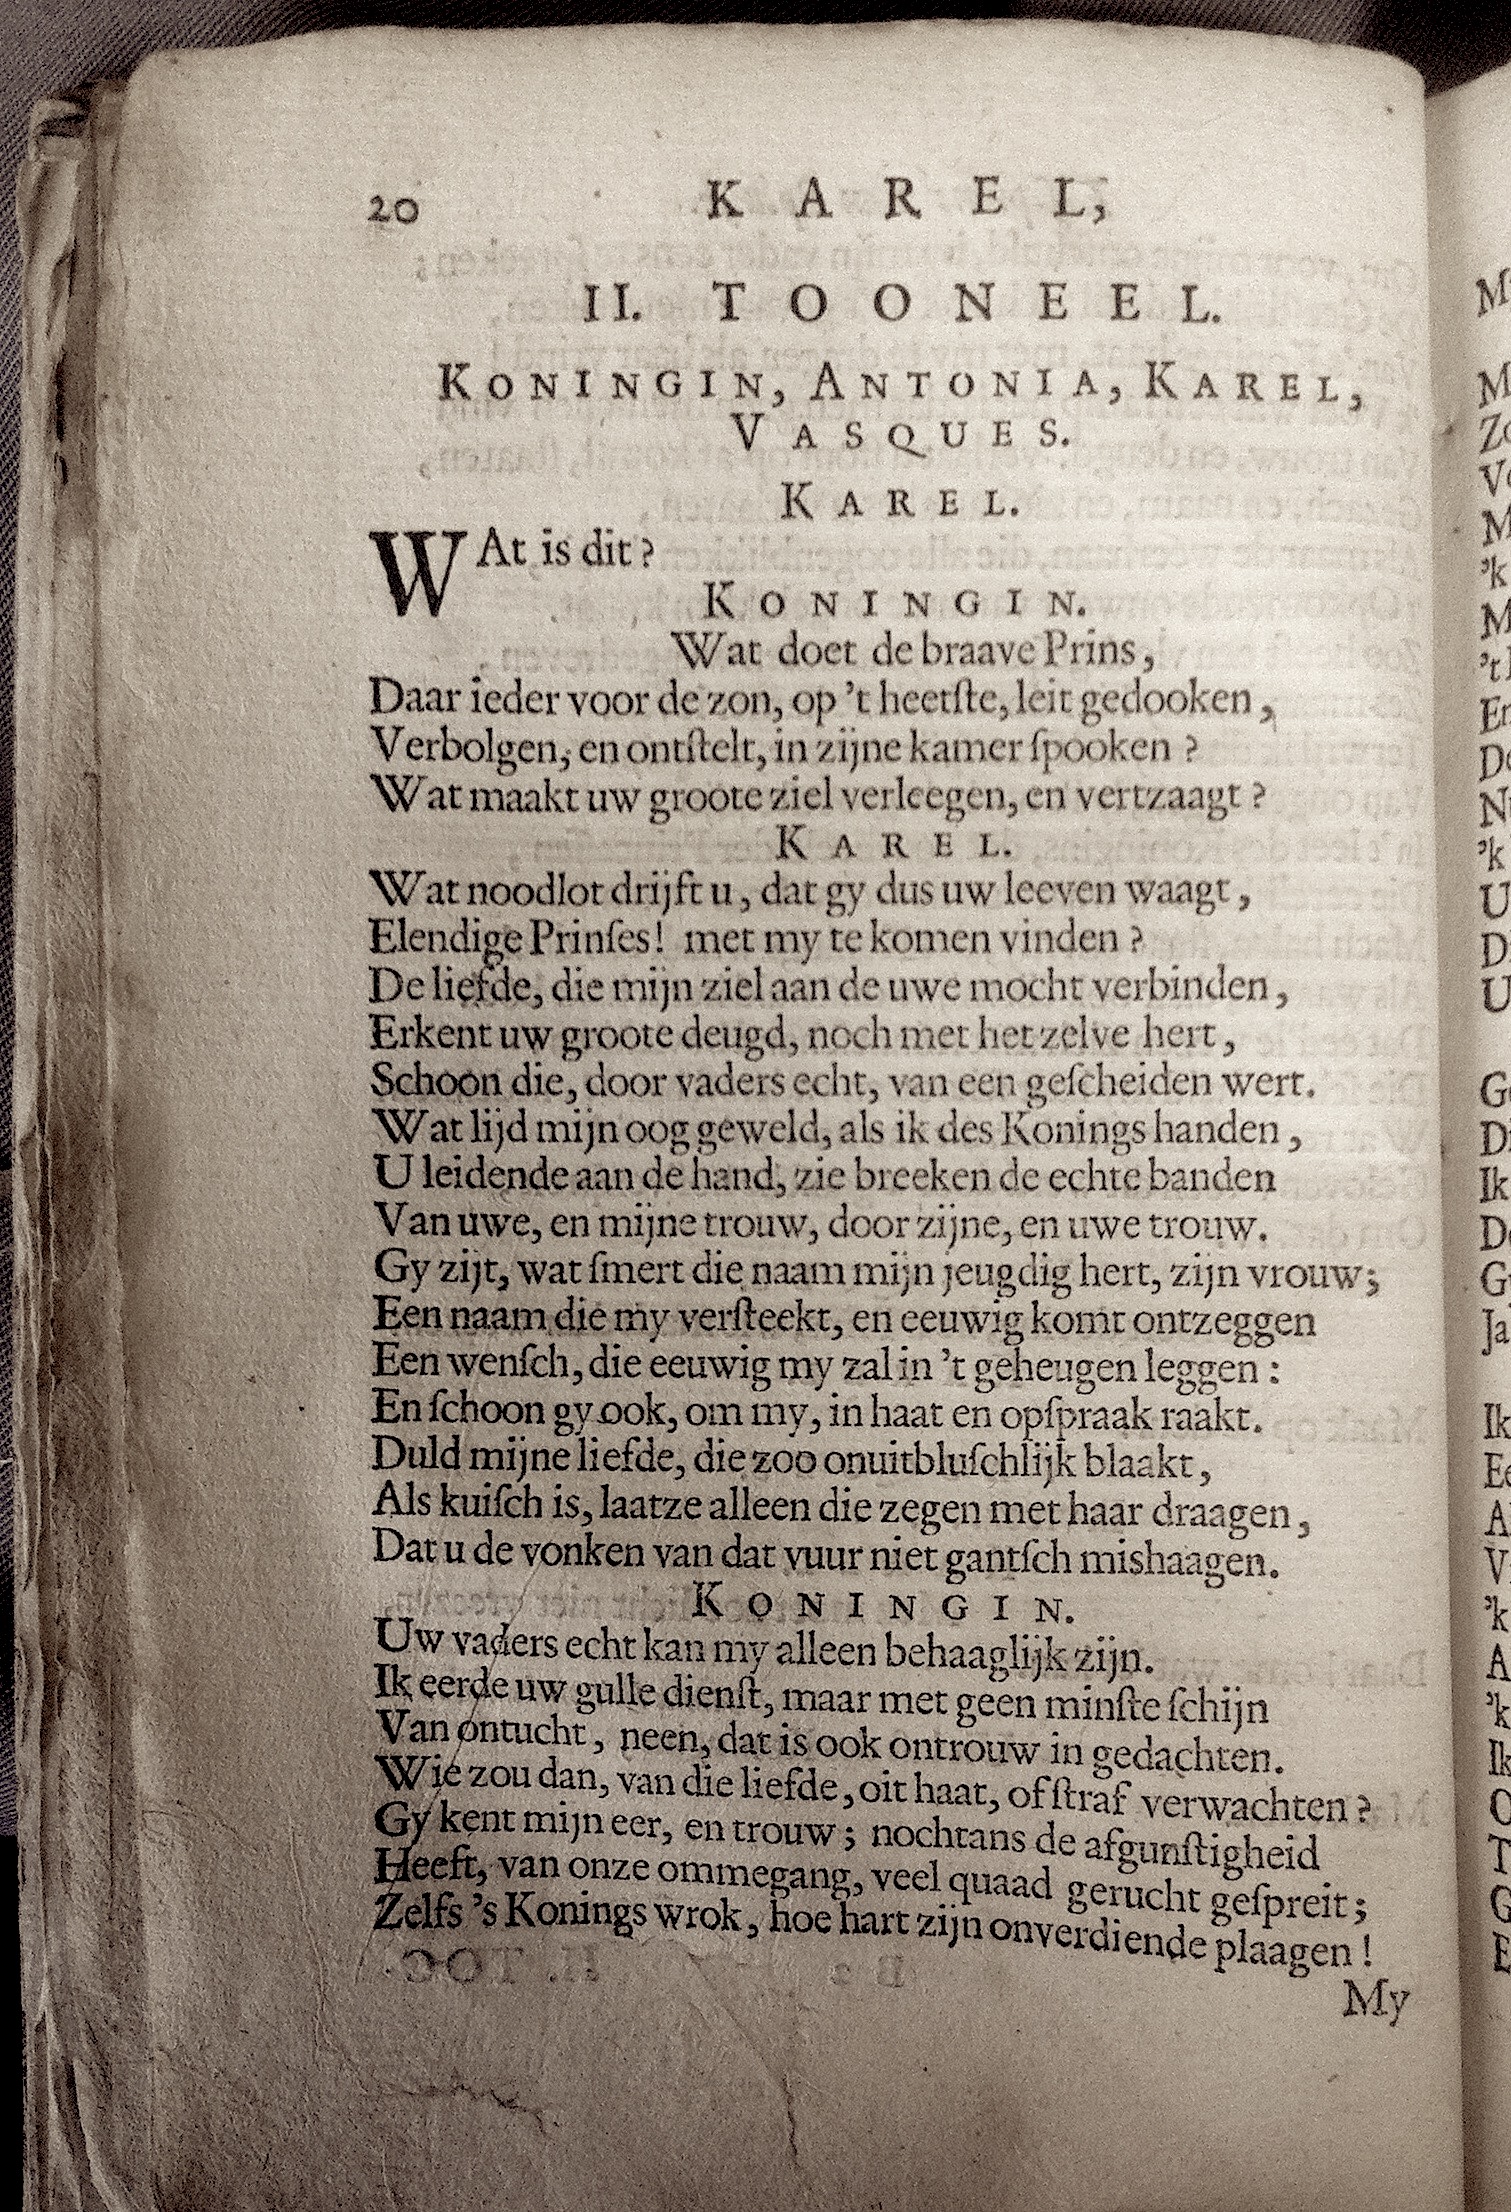 20 KAREL,
II. TOONEEL.
KONINGIN, ANTONIA, KAREL,
VASQUES.
KAREL.
WAt is dit?
KONINGIN.
Wat doet de braave Prins,
Daar ieder voor de zon, op 't heetſte, leit gedooken,
Verbolgen, en ontſtelt, in zijne kamer ſpooken?
Wat maakt uw groote ziel verleegen, en vertzaagt?
KAREL.
Wat noodlot drijft u, dat gy dus uw leeven waagt,
Elendige Prinſes! met my te komen vinden?
De liefde, die mijn ziel aan de uwe mocht verbinden,
Erkent uw groote deugd, noch met het zelve hert,
Schoon die, door vaders echt, van een geſcheiden wert.
Wat lijd mijn oog geweld, als ik des Konings handen,
U leidende aan de hand, zie breeken de echte banden
Van uwe, en mijne trouw, door zijne, en uwe trouw.
Gy zijt, wat ſmert die naam mijn jeugdig hert, zijn vrouw;
Een naam die my verſteekt, en eeuwig komt ontzeggen
Een wenſch, die eeuwig my zal in 't geheugen leggen:
En ſchoon gy ook, om my, in haat en opſpraak raakt.
Duld mijne liefde, die zoo onuitbluſchlijk blaakt,
Als kuiſch is, laatze alleen die zegen met haar draagen,
Dat u de vonken van dat vuur niet gantſch mishaagen.
KONINGIN.
Uw vaders echt kan my alleen behaaglijk zijn.
Ik eerde uw gulle dienſt, maar met geen minſte ſchijn
Van ontucht, neen, dat is ook ontrouw in gedachten.
Wie zou dan, van die liefde, oit haat, of ſtraf verwachten?
Gy kent mijn eer, en trouw; nochtans de afgunſtigheid
Heeft, van onze ommegang, veel quaad gerucht geſpreit;
Zelfs 's Konings wrok, hoe hart zijn onverdiende plaagen!
My